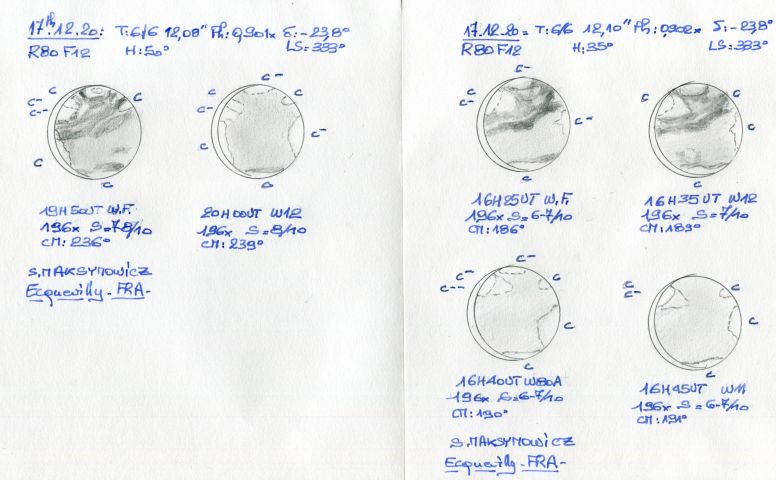 17th.12.20: T:6/6 12,08" Ph:0,901x δ:-23,8°
R80 F12 H:50° LS:333°
C C-- C- C
C C
C-- C C C C- C
19H50UT W.F. 20H00UT W12
196x S=7-8/10 196x S=8/10
CM:236° CM:239°
S.MAKSYMOWICZ
Ecquevilly-FRA-
17.12.20= T:6/6 12,10" Ph:0,902x δ:-23,8°
R80F12 H:35° LS:333°
C- C C- C- C
C C C C C
16H25UT W.F. 16H35UT W12
196x S=6-7/10 196x S=7/10
CM:186° CM:189°
C- C- C-- C C C
C C- C C C
16H40UT W80A 16H45UT W11
196x S=6-7/10 196x S=6-7/10
CM:190° CM:191°
S.MAKSYMOWICZ
Ecquevilly-FRA-